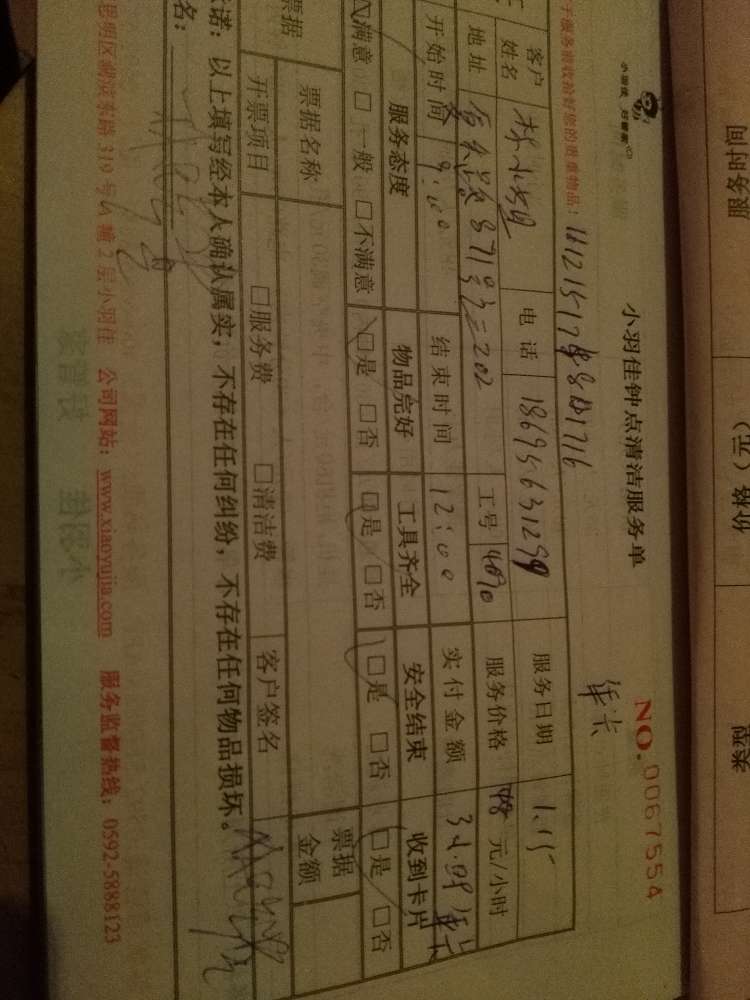 服务时间
价格（元）
类型
小羽佳 好管家
小羽佳钟点清洁服务单
NO.0067554
于服务前收拾好您的贵重物品：
年卡
客户姓名
电话 18695631299
服务日期 1.15
地址
工号 4890
服务价格 48 元/小时
开始时间 9:00
结束时间 12:00
实付金额 年卡
服务态度 物品完好 工具齐全 安全结束 收到卡片
☑满意 □一般 □不满意 □是 □否 □是 □否 □是 □否 □是 □否
票据 票据名称 票据金额
开票项目 □服务费 □清洁费 客户签名
诺：以上填写经本人确认属实，不存在任何纠纷，不存在任何物品损坏。
名：
思明区湖滨东路 319 号 A 幢 2 层小羽佳 公司网站：www.xiaoyujia.com 服务监督热线：0592-5888123